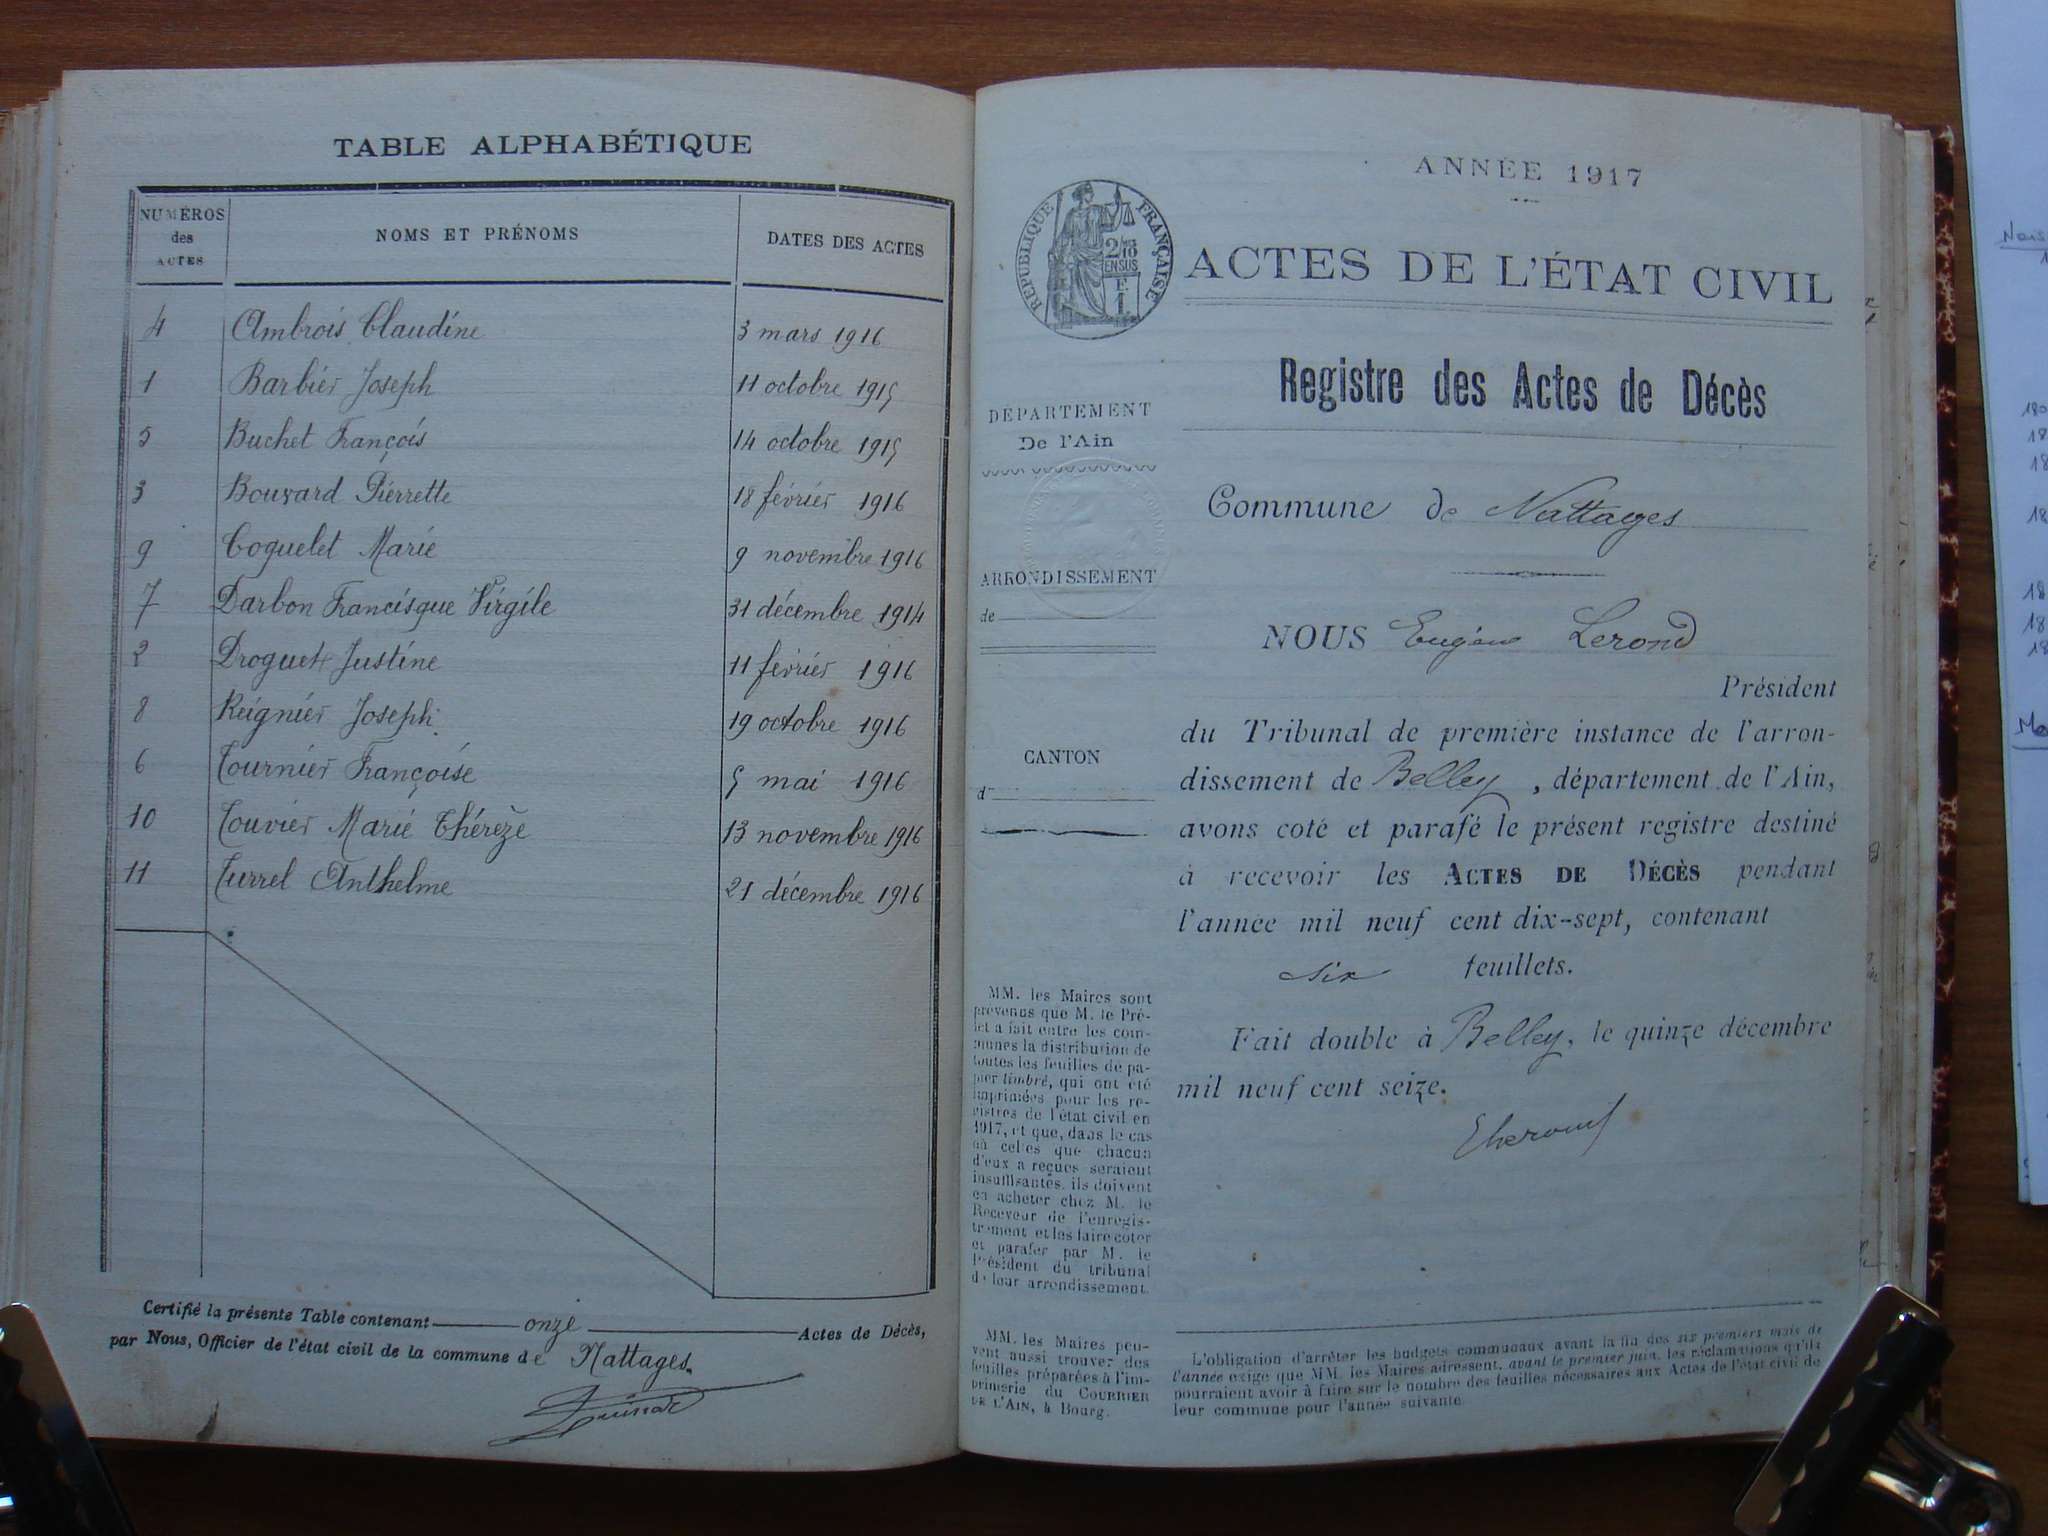 TABLE ALPHABÉTIQUE
NUMÉROS
des
ACTES
NOMS ET PRÉNOMS
DATES DES ACTES
4 Ambrois Claudine 3 mars 1916
1 Barbier Joseph 11 octobre 1915
5 Buchet François 14 octobre 1915
3 Bouvard Pierrette 18 février 1916
9 Coquelet Marie 9 novembre 1916
7 Darbon Francisque Virgile 31 décembre 1914
2 Droguet Justine 11 février 1916
8 Reignier Joseph 19 octobre 1916
6 Tournier Françoise 5 mai 1916
10 Touvier Marie Thérèze 13 novembre 1916
11 Turrel Anthelme 21 décembre 1916
Certifié la présente Table contenant onze Actes de Décès,
par Nous, Officier de l'état civil de la commune de Nattages.
ANNÉE 1917
RÉPUBLIQUE FRANÇAISE
2/10
EN SUS
ACTES DE L'ÉTAT CIVIL
Registre des Actes de Décès
DÉPARTEMENT
De l'Ain
Commune de Nattages
ARRONDISSEMENT
de
NOUS Eugène Lerond
Président
du Tribunal de première instance de l'arron-
dissement de Belley, département de l'Ain,
avons coté et parafé le présent registre destiné
à recevoir les ACTES DE DÉCÈS pendant
l'année mil neuf cent dix-sept, contenant
six feuillets.
Fait double à Belley, le quinze décembre
mil neuf cent seize.
CANTON
d
MM. les Maires sont
prévenus que M. le Pré-
fet a fait entre les com-
munes la distribution de
toutes les feuilles de pa-
pier timbré, qui ont été
imprimées pour les re-
gistres de l'état civil en
1917, et que, dans le cas
où celles que chacun
d'eux a reçues seraient
insuffisantes, ils doivent
en acheter chez M. le
Receveur de l'enregis-
trement et les faire coter
et parafer par M. le
Président du tribunal
de leur arrondissement.
MM. les Maires peu-
vent aussi trouver des
feuilles préparées à l'im-
primerie du COURRIER
DE L'AIN, à Bourg.
L'obligation d'arrêter les budgets communaux avant la fin des six premiers mois de
l'année exige que MM. les Maires adressent, avant le premier juin, les réclamations qu'ils
pourraient avoir à faire sur le nombre des feuilles nécessaires aux Actes de l'état civil de
leur commune pour l'année suivante.